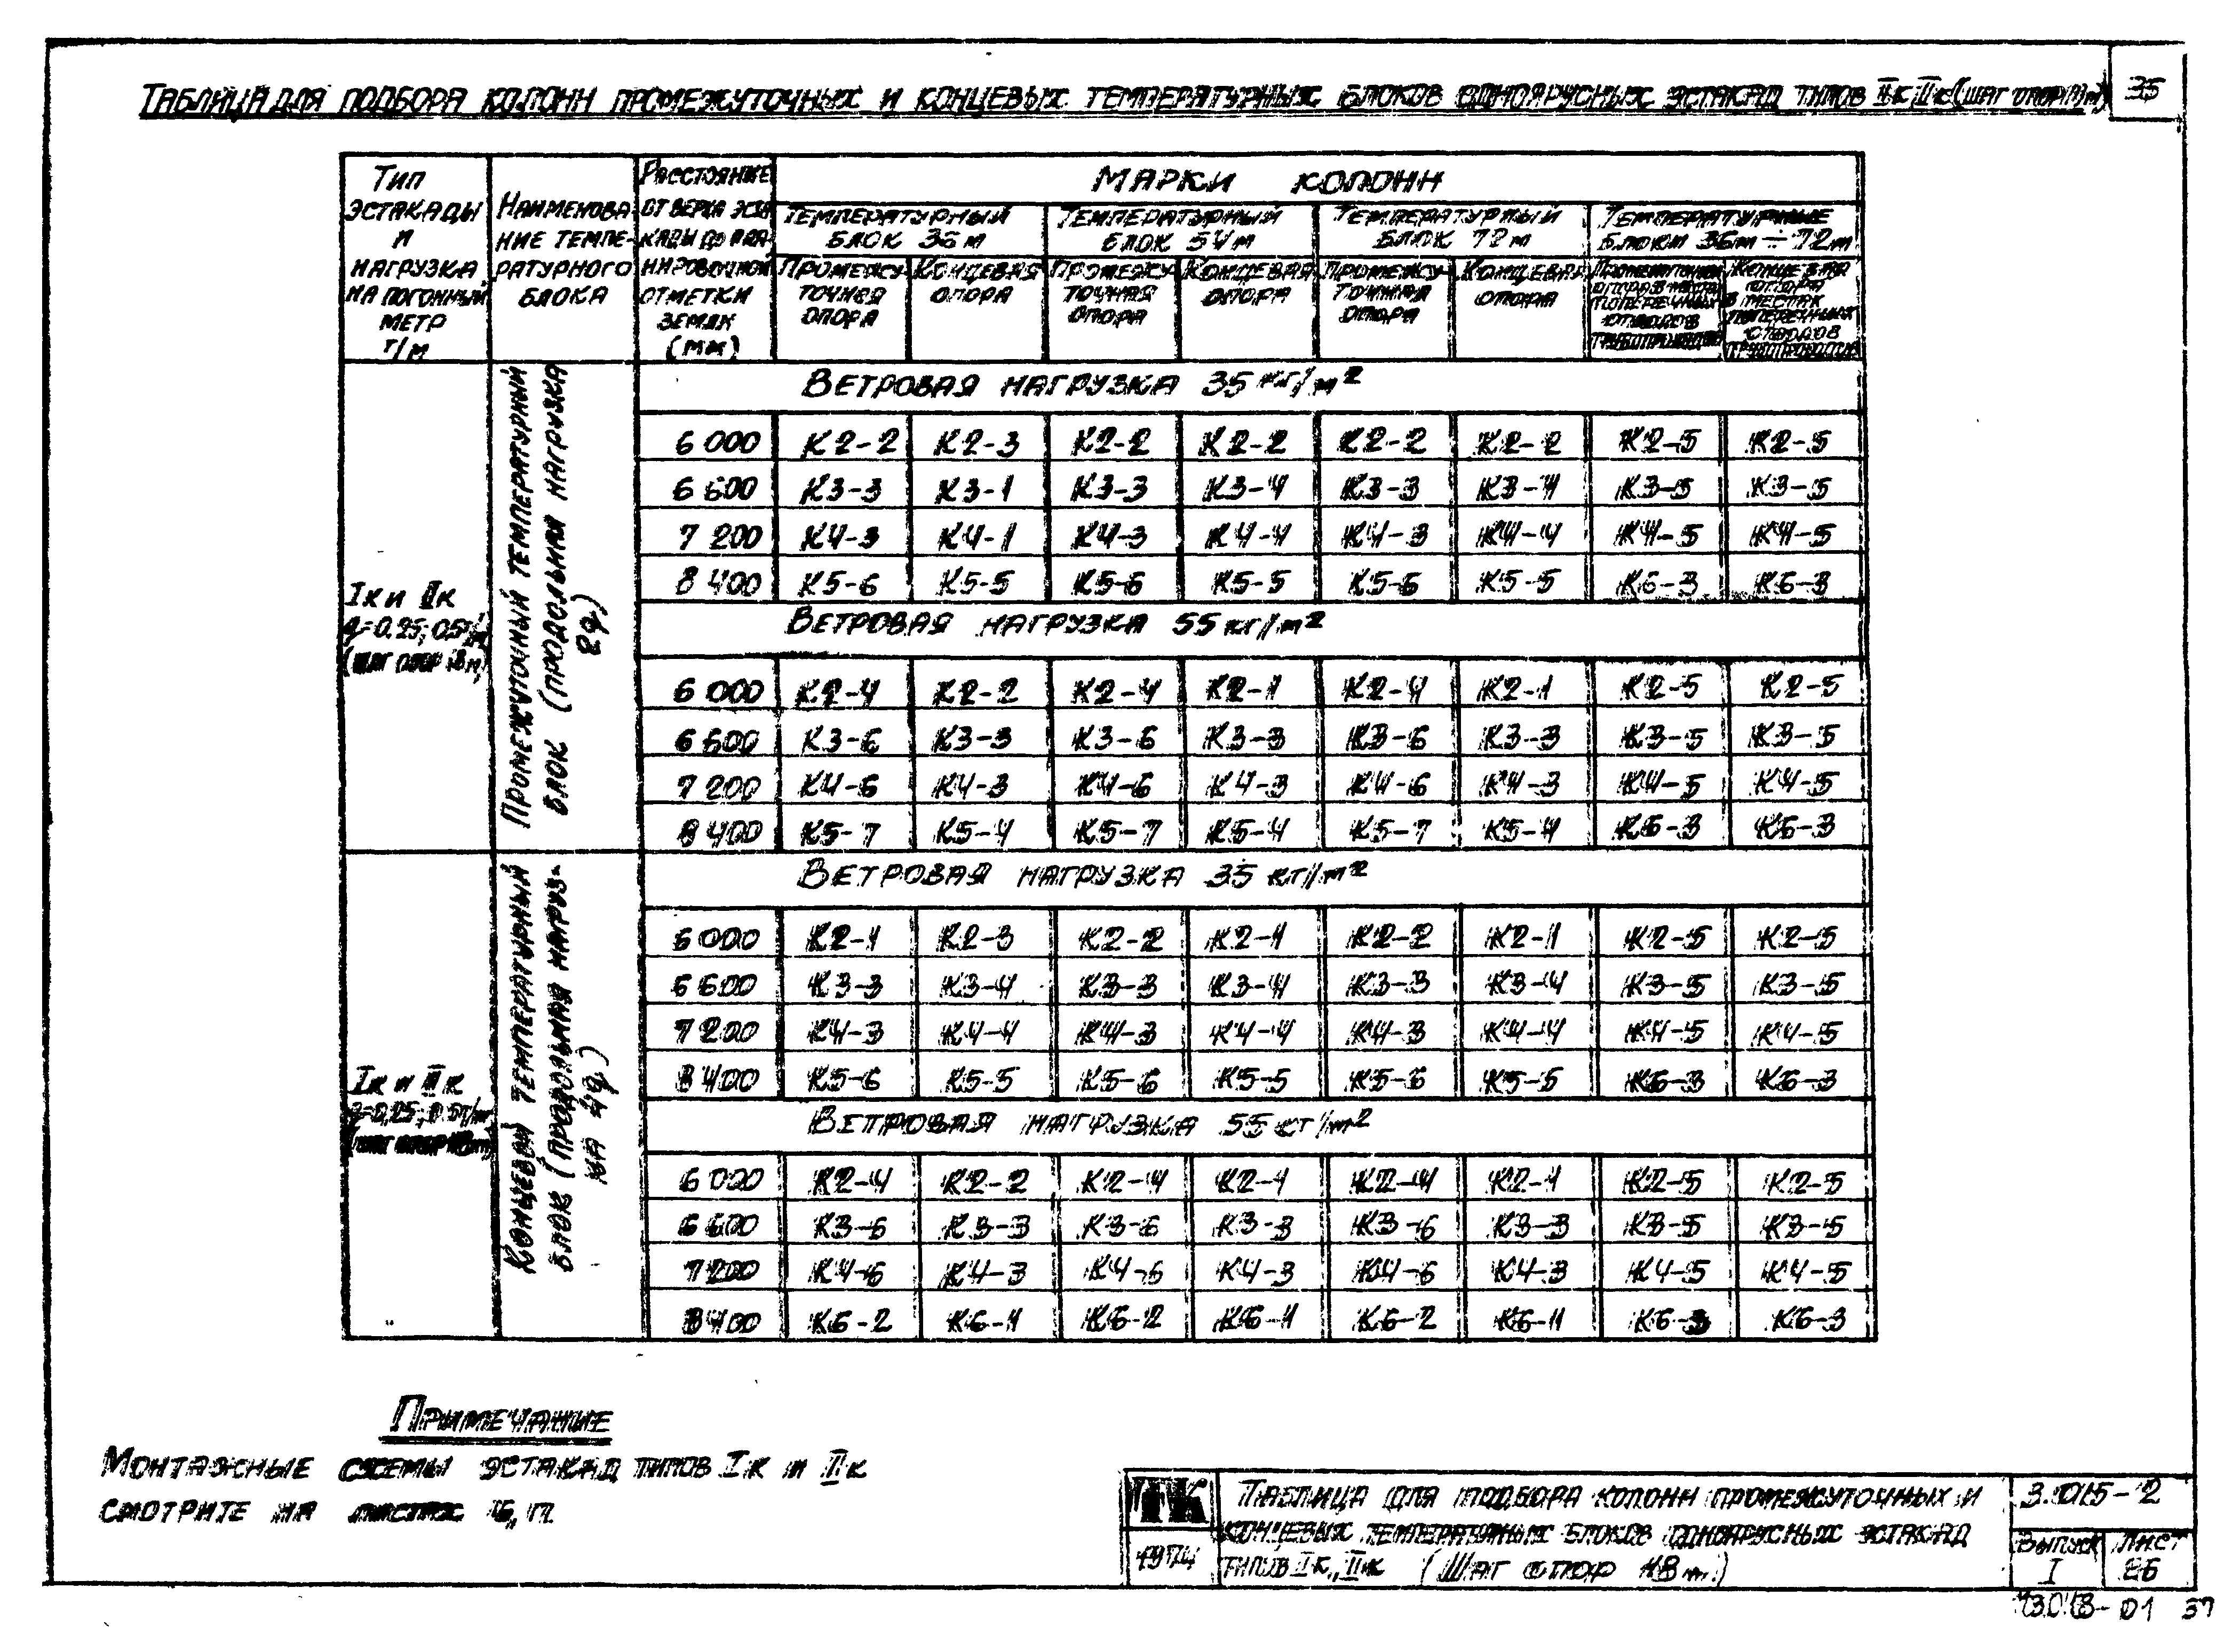 Таблица для подбора колонн промежуточных и концевых температурных блоков одноярусных эстакад типов Iк, IIк (шаг опор 18 м)
35
Тип эстакады и нагрузка на погонный метр т/м
Наименование температурного блока
Расстояние от верха эстакады до планировочной отметки земли (мм)
Марки колонн
Температурный блок 36м
Температурный блок 54м
Температурный блок 72м
Температурные блоки 36м ÷ 72м
Промежуточная опора
Концевая опора
Промежуточная опора
Концевая опора
Промежуточная опора
Концевая опора
Промежуточная опора в местах поперечных отводов трубопроводов
Концевая опора в местах поперечных отводов трубопроводов
Iк и IIк
q=0.25; 0.5т/м
(шаг опор 18м)
Промежуточный температурный блок (продольная нагрузка 2q)
Ветровая нагрузка 35 кг/м²
6 000 К2-2 К2-3 К2-2 К2-2 К2-2 К2-2 К2-5 К2-5
6 600 К3-3 К3-1 К3-3 К3-4 К3-3 К3-4 К3-5 К3-5
7 200 К4-3 К4-1 К4-3 К4-4 К4-3 К4-4 К4-5 К4-5
8 400 К5-6 К5-5 К5-6 К5-5 К5-6 К5-5 К6-3 К6-3
Ветровая нагрузка 55 кг/м²
6 000 К2-4 К2-2 К2-4 К2-1 К2-4 К2-1 К2-5 К2-5
6 600 К3-6 К3-3 К3-6 К3-3 К3-6 К3-3 К3-5 К3-5
7 200 К4-6 К4-3 К4-6 К4-3 К4-6 К4-3 К4-5 К4-5
8 400 К5-7 К5-4 К5-7 К5-4 К5-7 К5-4 К6-3 К6-3
Iк и IIк
q=0,25; 0.5т/м
(шаг опор 18м)
Концевой температурный блок (продольная нагрузка 4q)
Ветровая нагрузка 35 кг/м²
6 000 К2-1 К2-3 К2-2 К2-1 К2-2 К2-1 К2-5 К2-5
6 600 К3-3 К3-4 К3-3 К3-4 К3-3 К3-4 К3-5 К3-5
7 200 К4-3 К4-4 К4-3 К4-4 К4-3 К4-4 К4-5 К4-5
8 400 К5-6 К5-5 К5-6 К5-5 К5-6 К5-5 К6-3 К6-3
Ветровая нагрузка 55 кг/м²
6 000 К2-4 К2-2 К2-4 К2-1 К2-4 К2-1 К2-5 К2-5
6 600 К3-6 К3-3 К3-6 К3-3 К3-6 К3-3 К3-5 К3-5
7 200 К4-6 К4-3 К4-6 К4-3 К4-6 К4-3 К4-5 К4-5
8 400 К6-2 К6-1 К6-2 К6-1 К6-2 К6-1 К6-3 К6-3
Примечание
Монтажные схемы эстакад типов Iк и IIк
смотрите на листах
ТК
1974
Таблица для подбора колонн промежуточных и
концевых температурных блоков одноярусных эстакад
типов Iк, IIк (Шаг опор 18 м)
3.015-2
Выпуск I
Лист 26
13018-01 37